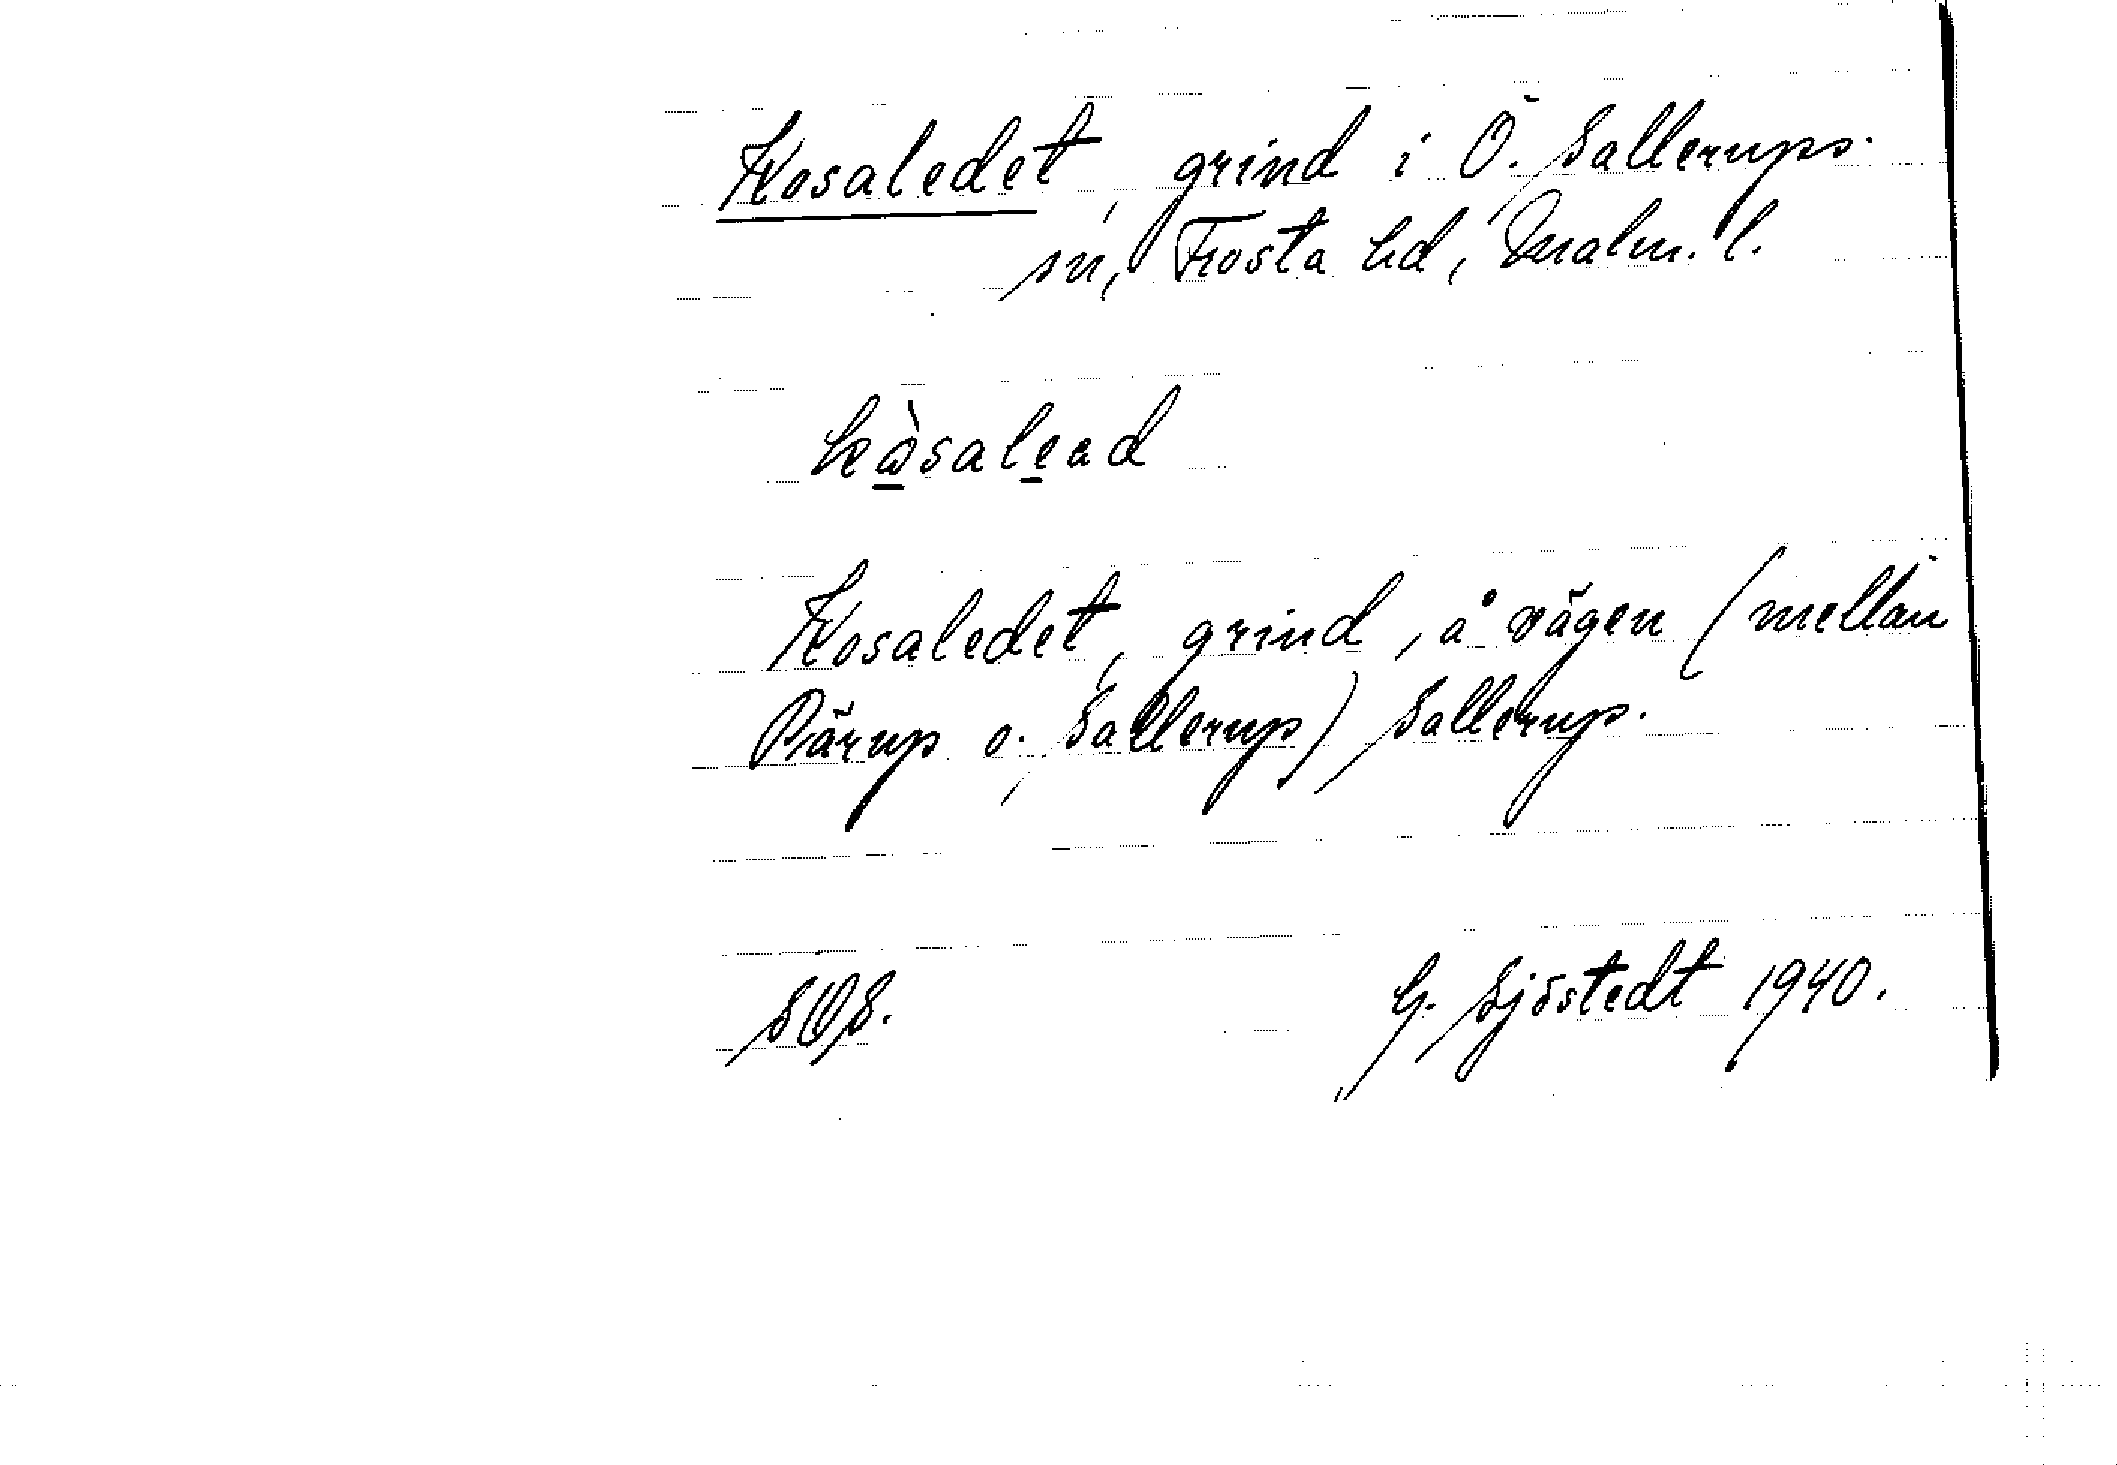 Kosaledet, grind i Ö. Sallerups
sn, Frosta hd, Malm. l.
kòsalead
Kosaledet, grind, å vägen (mellan
Pärup o. Sallerup) Sallerup.
G. Sjöstedt 1940.